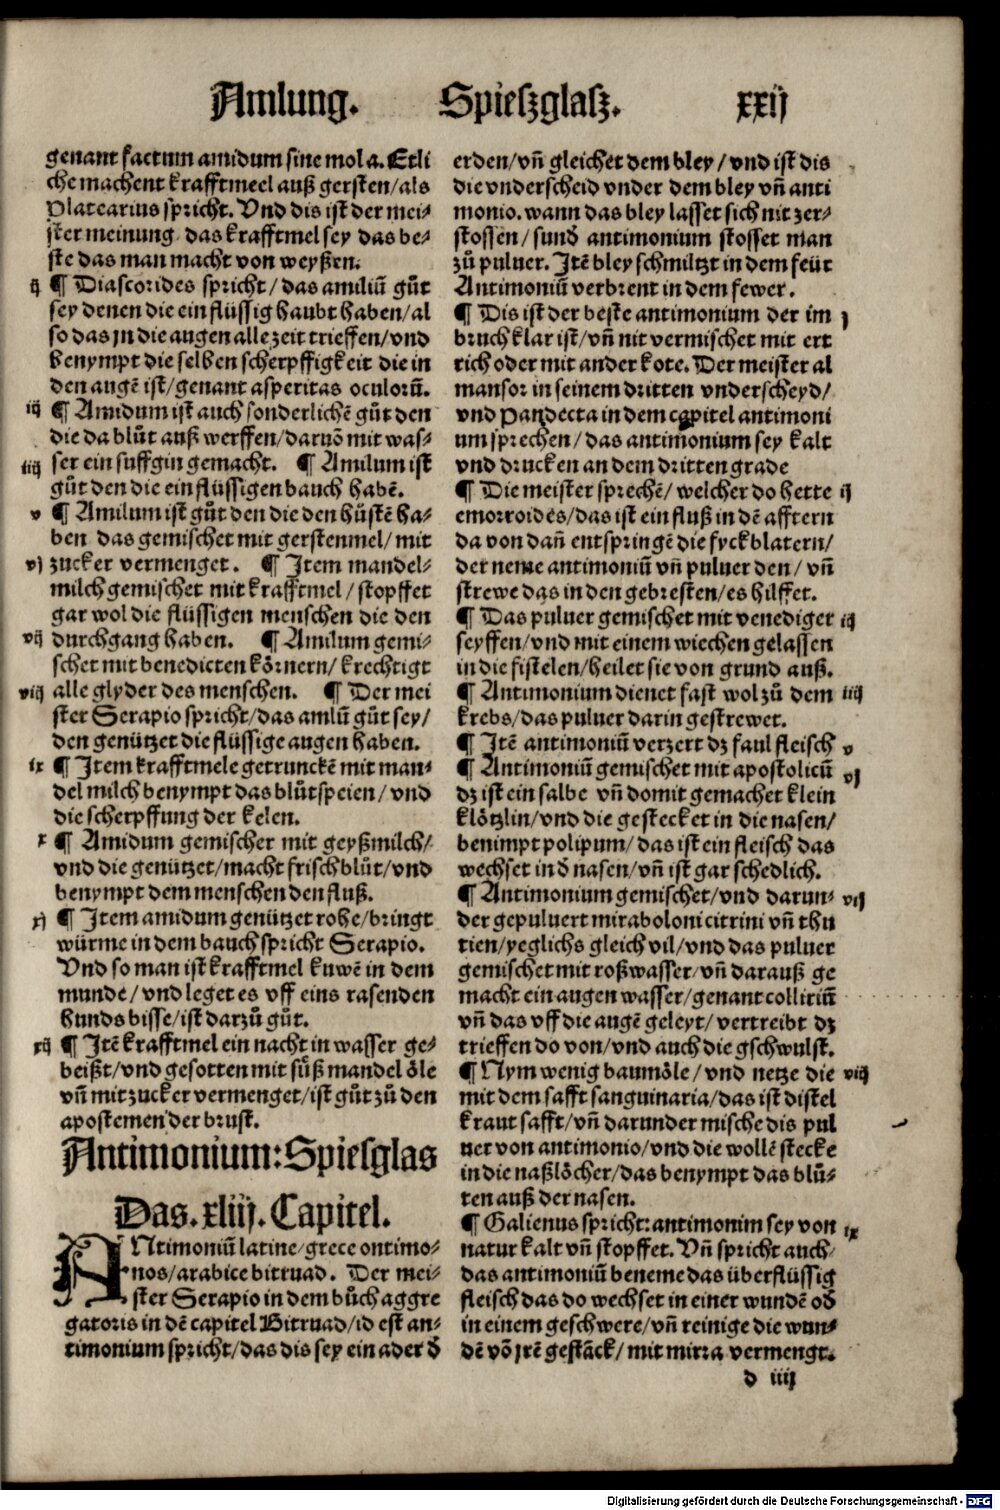 Amlung. Spieszglasz. xxij
genant factum amidum sine mola. Etli
che machent krafftmeel auß gersten/als
Platearius spricht. Vnd dis ist der mei⸗
ster meinung das krafftmel sey das be⸗
ste das man macht von weyßen.
ij ¶ Diascorides spricht/das amiliū gůt
sey denen die ein flüssig haubt haben/al
so das jn die augen alle zeit trieffen/vnd
benympt die selben scherpffigkeit die in
den augē ist/genant asperitas oculorū.
iij ¶ Amidum ist auch sonderlichē gůt den
die da blůt auß werffen/daruō mit was⸗
iiij ser ein suffgin gemacht. ¶ Amilum ist
gůt den die ein flüssigen bauch habē.
v ¶ Amilum ist gůt den die den hůstē ha⸗
ben das gemischet mit gerstenmel/mit
vj zucker vermenget. ¶ Item mandel⸗
milch gemischet mit krafftmel/stopffet
gar wol die flüssigen menschen die den
vij durchgang haben. ¶ Amilum gemi⸗
schet mit benedicten körnern/krechtigt
viij alle glyder des menschen. ¶ Der mei
ster Serapio spricht/das amlū gůt sey/
den genützet die flüssige augen haben.
ix ¶ Item krafftmele getrunckē mit man⸗
del milch benympt das blůtspeien/vnd
die scherpffung der kelen.
x ¶ Amidum gemischer mit geyßmilch/
vnd die genützet/macht frisch blůt/vnd
benympt dem menschen den fluß.
xj ¶ Item amidum genützet rohe/bringt
würme in dem bauch spricht Serapio.
Vnd so man ist krafftmel kuwē in dem
munde/vnd leget es vff eins rasenden
hunds bisse/ist darzů gůt.
xij ¶ Itē krafftmel ein nacht in wasser ge⸗
beißt/vnd gesotten mit süß mandel öle
vn̄ mit zucker vermenget/ist gůt zů den
apostemen der brust.
Antimonium: Spiesglas
Das. xliij. Capitel.
ANtimoniū latine/grece ontimo⸗
nos/arabice bitruad. Der mei⸗
ster Serapio in dem bůch aggre
gatoris in dē capitel Bitruad/id est an⸗
timonium spricht/das dis sey ein ader d̄
erden/vn̄ gleichet dem bley/vnd ist dis
die vnderscheid vnder dem bley vn̄ anti
monio. wann das bley lasset sich nit zer⸗
stossen/sund̄ antimonium stosset man
zů puluer. Itē bley schmiltzt in dem feür
Antimoniū verbrent in dem fewer.
¶ Dis ist der beste antimonium der im j
bruch klar ist/vn̄ nit vermischet mit ert
rich oder mit ander kote. Der meister al
mansor in seinem dritten vnderscheyd/
vnd Pandecta in dem capitel antimoni
um sprechen/das antimonium sey kalt
vnd drucken an dem dritten grade
¶ Die meister sprechē/welcher do hette ij
emorroides/das ist ein fluß in dē afftern
da von dan̄ entspringē die fyckblatern/
der neme antimoniū vn̄ puluer den/vn̄
strewe das in den gebresten/es hilffet.
¶ Das puluer gemischet mit venediger iij
seyffen/vnd mit einem wiechen gelassen
in die fistelen/heilet sie von grund auß.
¶ Antimonium dienet fast wol zů dem iiij
krebs/das puluer darin gestrewet.
¶ Itē antimoniū verzert dz faul fleisch v
¶ Antimoniū gemischet mit apostolicū vj
dz ist ein salbe vn̄ domit gemachet klein
klötzlin/vnd die gestecket in die nasen/
benimpt polipum/das ist ein fleisch das
wechset in d̄ nasen/vn̄ ist gar schedlich.
¶ Antimonium gemischet/vnd darun⸗ vij
der gepuluert miraboloni citrini vn̄ thu
tien/yeglichs gleich vil/vnd das puluer
gemischet mit roßwasser/vn̄ darauß ge
macht ein augen wasser/genant colliriū
vn̄ das vff die augē geleyt/vertreibt dz
trieffen do von/vnd auch die gschwulst.
¶ Nym wenig baumöle/vnd netze die viij
mit dem safft sanguinaria/das ist distel
kraut safft/vn̄ darunder mische dis pul
uer von antimonio/vnd die wollē stecke
in die naßlöcher/das benympt das blů⸗
ten auß der nasen.
¶ Galienus spricht: antimonim sey von ix
natur kalt vn̄ stopffet. Vn̄ spricht auch
das antimoniū beneme das überflüssig
fleisch das do wechset in einer wundē od̄
in einem geschwere/vn̄ reinige die wun⸗
dē vō jrē gestāck/mit mirra vermengt.
d iiij
Digitalisierung gefördert durch die Deutsche Forschungsgemeinschaft - DFG